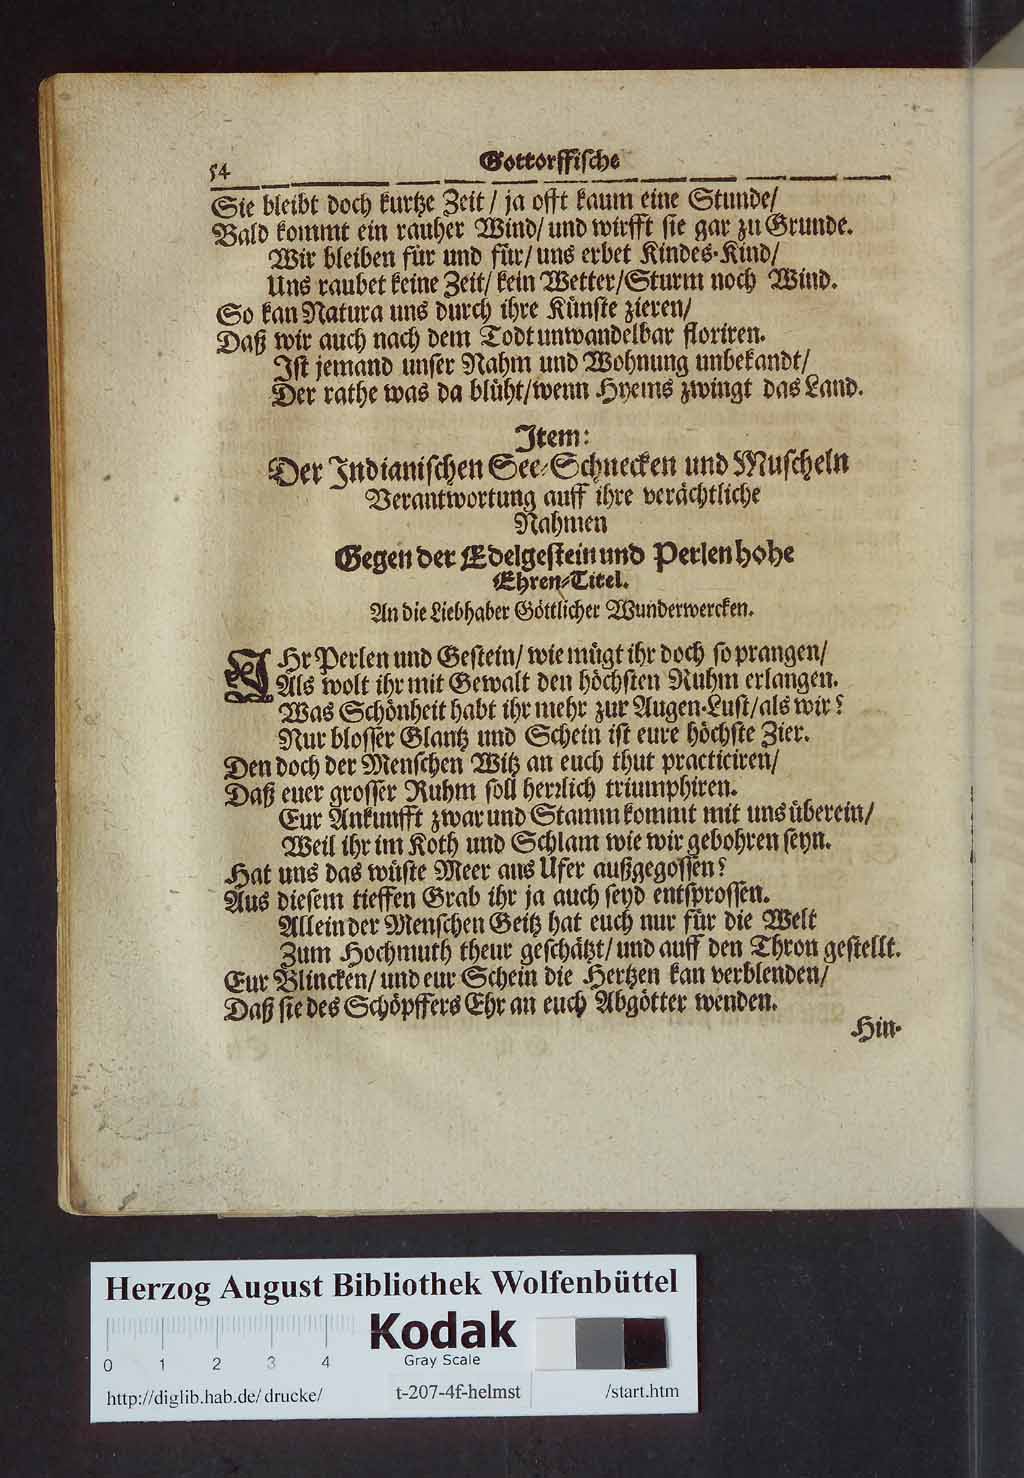 54
Gottorffische
Sie bleibt doch kurtze Zeit / ja offt kaum eine Stunde/
Bald kommt ein rauher Wind/ und wirfft sie gar zu Grunde.
Wir bleiben für und für/ uns erbet Kindes-Kind/
Uns raubet keine Zeit/ kein Wetter/Sturm noch Wind.
So kan Natura uns durch ihre Künste zieren/
Daß wir auch nach dem Todt unwandelbar floriren.
Ist jemand unser Nahm und Wohnung unbekandt/
Der rathe was da blüht/wenn Hyems zwingt das Land.
Item:
Der Indianischen See-Schnecken und Muscheln
Verantwortung auff ihre verächtliche
Nahmen
Gegen der Edelgestein und Perlen hohe
Ehren-Titel.
An die Liebhaber Göttlicher Wunderwercken.
IHr Perlen und Gestein/ wie mügt ihr doch so prangen/
Als wolt ihr mit Gewalt den höchsten Ruhm erlangen.
Was Schönheit habt ihr mehr zur Augen-Lust/als wir?
Nur blosser Glantz und Schein ist eure höchste Zier.
Den doch der Menschen Witz an euch thut practiciren/
Daß euer grosser Ruhm soll herrlich triumphiren.
Eur Ankunfft zwar und Stamm kommt mit uns überein/
Weil ihr im Koth und Schlam wie wir gebohren seyn.
Hat uns das wüste Meer ans Ufer außgegossen?
Aus diesem tieffen Grab ihr ja auch seyd entsprossen.
Allein der Menschen Geitz hat euch nur für die Welt
Zum Hochmuth theur geschätzt/ und auff den Thron gestellt.
Eur Blincken/ und eur Schein die Hertzen kan verblenden/
Daß sie des Schöpffers Ehr an euch Abgötter wenden.
Hin-
Herzog August Bibliothek Wolfenbüttel
Kodak
Gray Scale
0 1 2 3 4
http://diglib.hab.de/drucke/ t-207-4f-helmst /start.htm